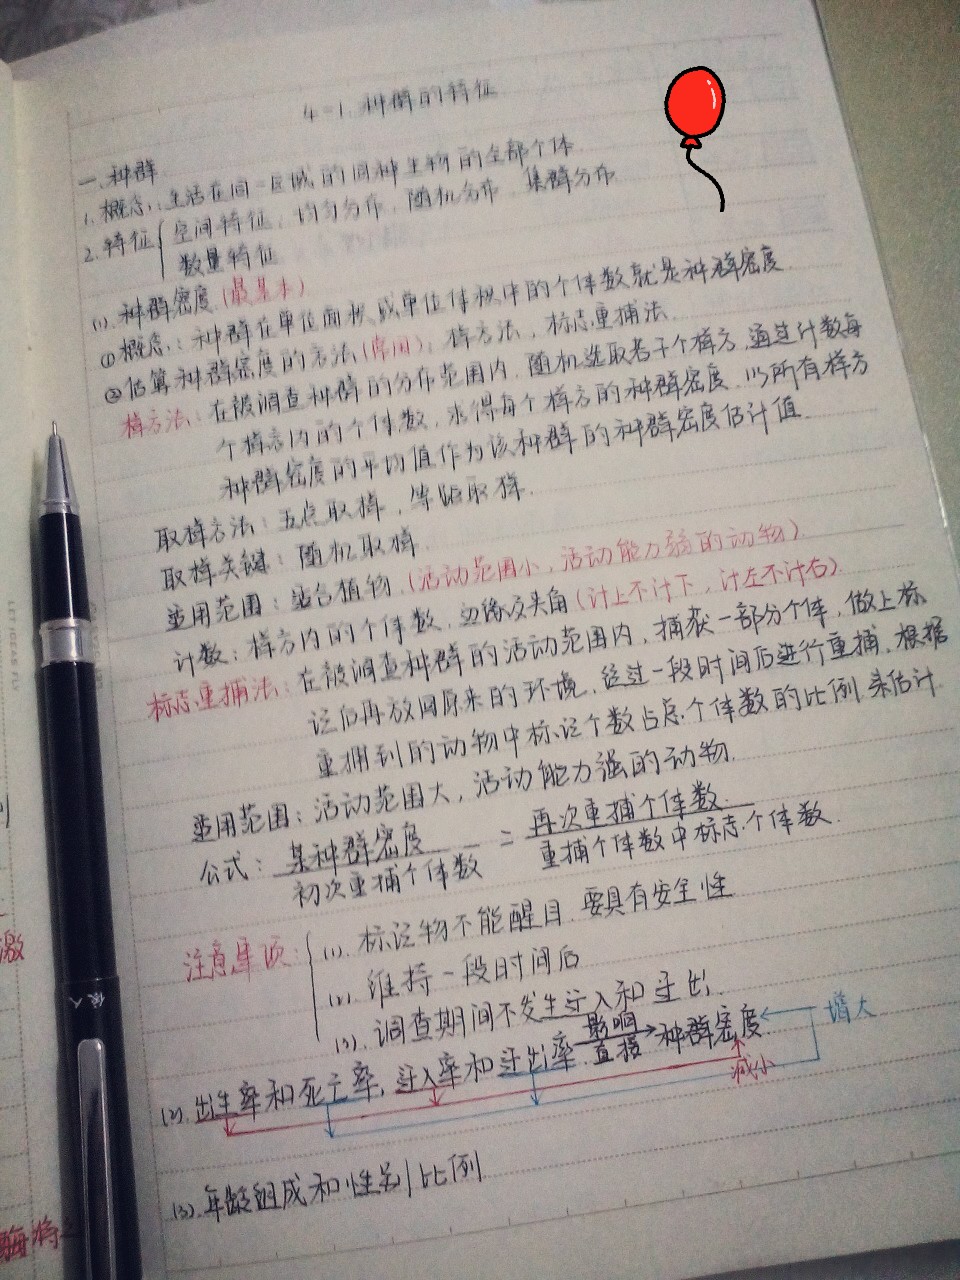 4-1.种群的特征
一、种群
1.概念:生活在同一区域的同种生物的全部个体
2.特征{空间特征:均匀分布,随机分布,集群分布
数量特征
(1).种群密度(最基本)
①概念:种群在单位面积或单位体积中的个体数就是种群密度.
②估算种群密度的方法(常用):样方法,标志重捕法.
样方法:在被调查种群的分布范围内,随机选取若干个样方,通过计数每
个样方内的个体数,求得每个样方的种群密度,以所有样方
种群密度的平均值作为该种群的种群密度估计值.
取样方法:五点取样,等距取样.
取样关键:随机取样.
适用范围:适合植物.(活动范围小,活动能力弱的动物).
计数:样方内的个体数,边缘及夹角(计上不计下,计左不计右).
标志重捕法:在被调查种群的活动范围内,捕获一部分个体,做上标
记后再放回原来的环境,经过一段时间后进行重捕,根据
重捕到的动物中标记个数占总个体数的比例,来估计
适用范围:活动范围大,活动能力强的动物.
公式:某种群密度/初次重捕个体数=再次重捕个体数/重捕个体数中标志个体数.
注意事项:{(1).标记物不能醒目.要具有安全性
(2).维持一段时间后
(3).调查期间不发生迁入和迁出.
(2).出生率和死亡率,迁入率和迁出率.影响直接→种群密度 增大
减小
(3).年龄组成和性别比例
激